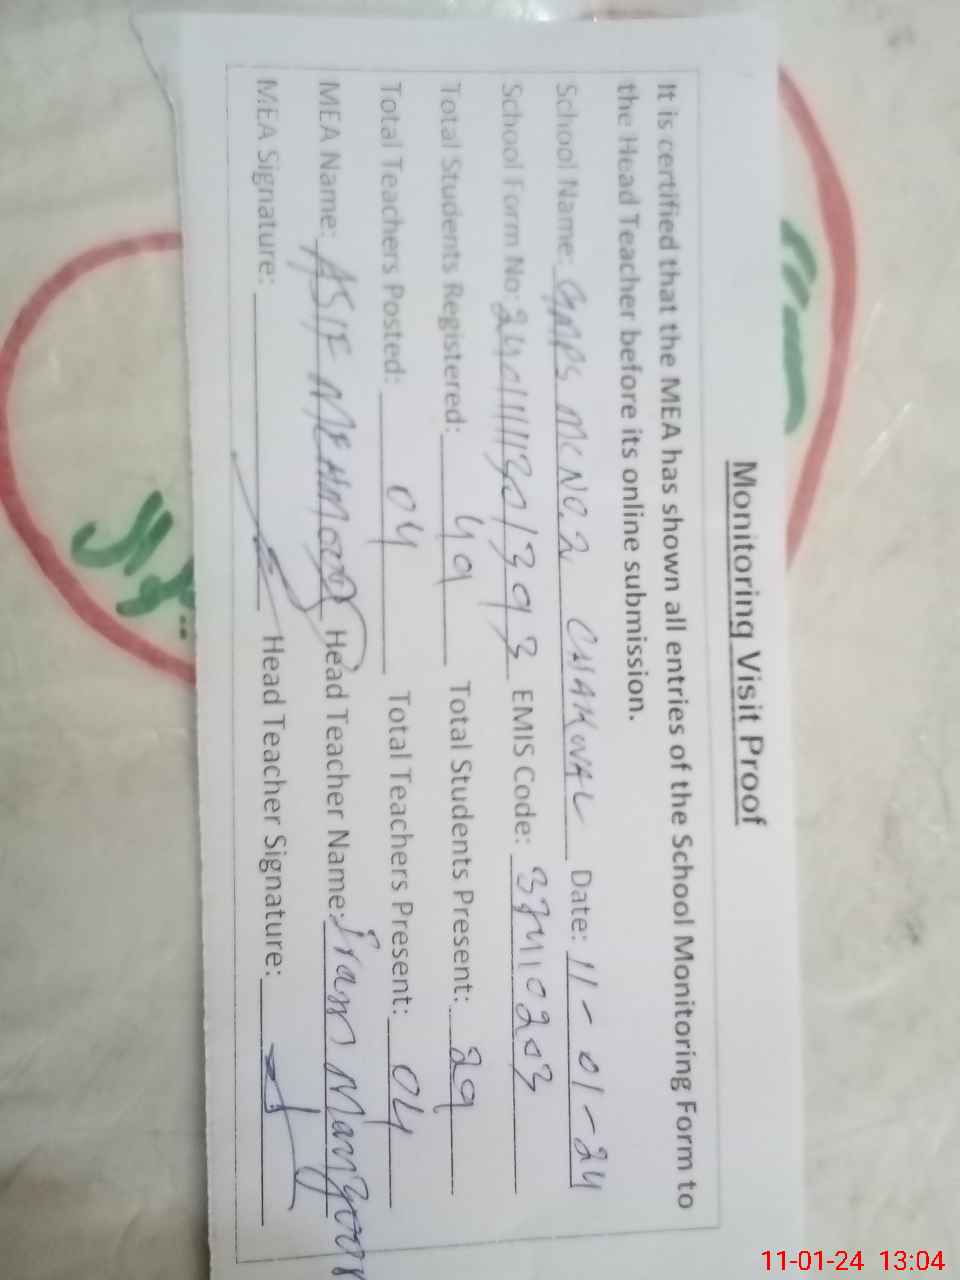 Monitoring Visit Proof
It is certified that the MEA has shown all entries of the School Monitoring Form to
the Head Teacher before its online submission.
School Name: GMPS MC NO.2 CHAKWAL Date: 11-01-24
School Form No: EMIS Code: 37210203
Total Students Registered: 49 Total Students Present: 29
Total Teachers Posted: 04 Total Teachers Present: 04
MEA Name: ASIF MEHMOOD Head Teacher Name: Iram Manzoor
MEA Signature: Head Teacher Signature:
11-01-24 13:04